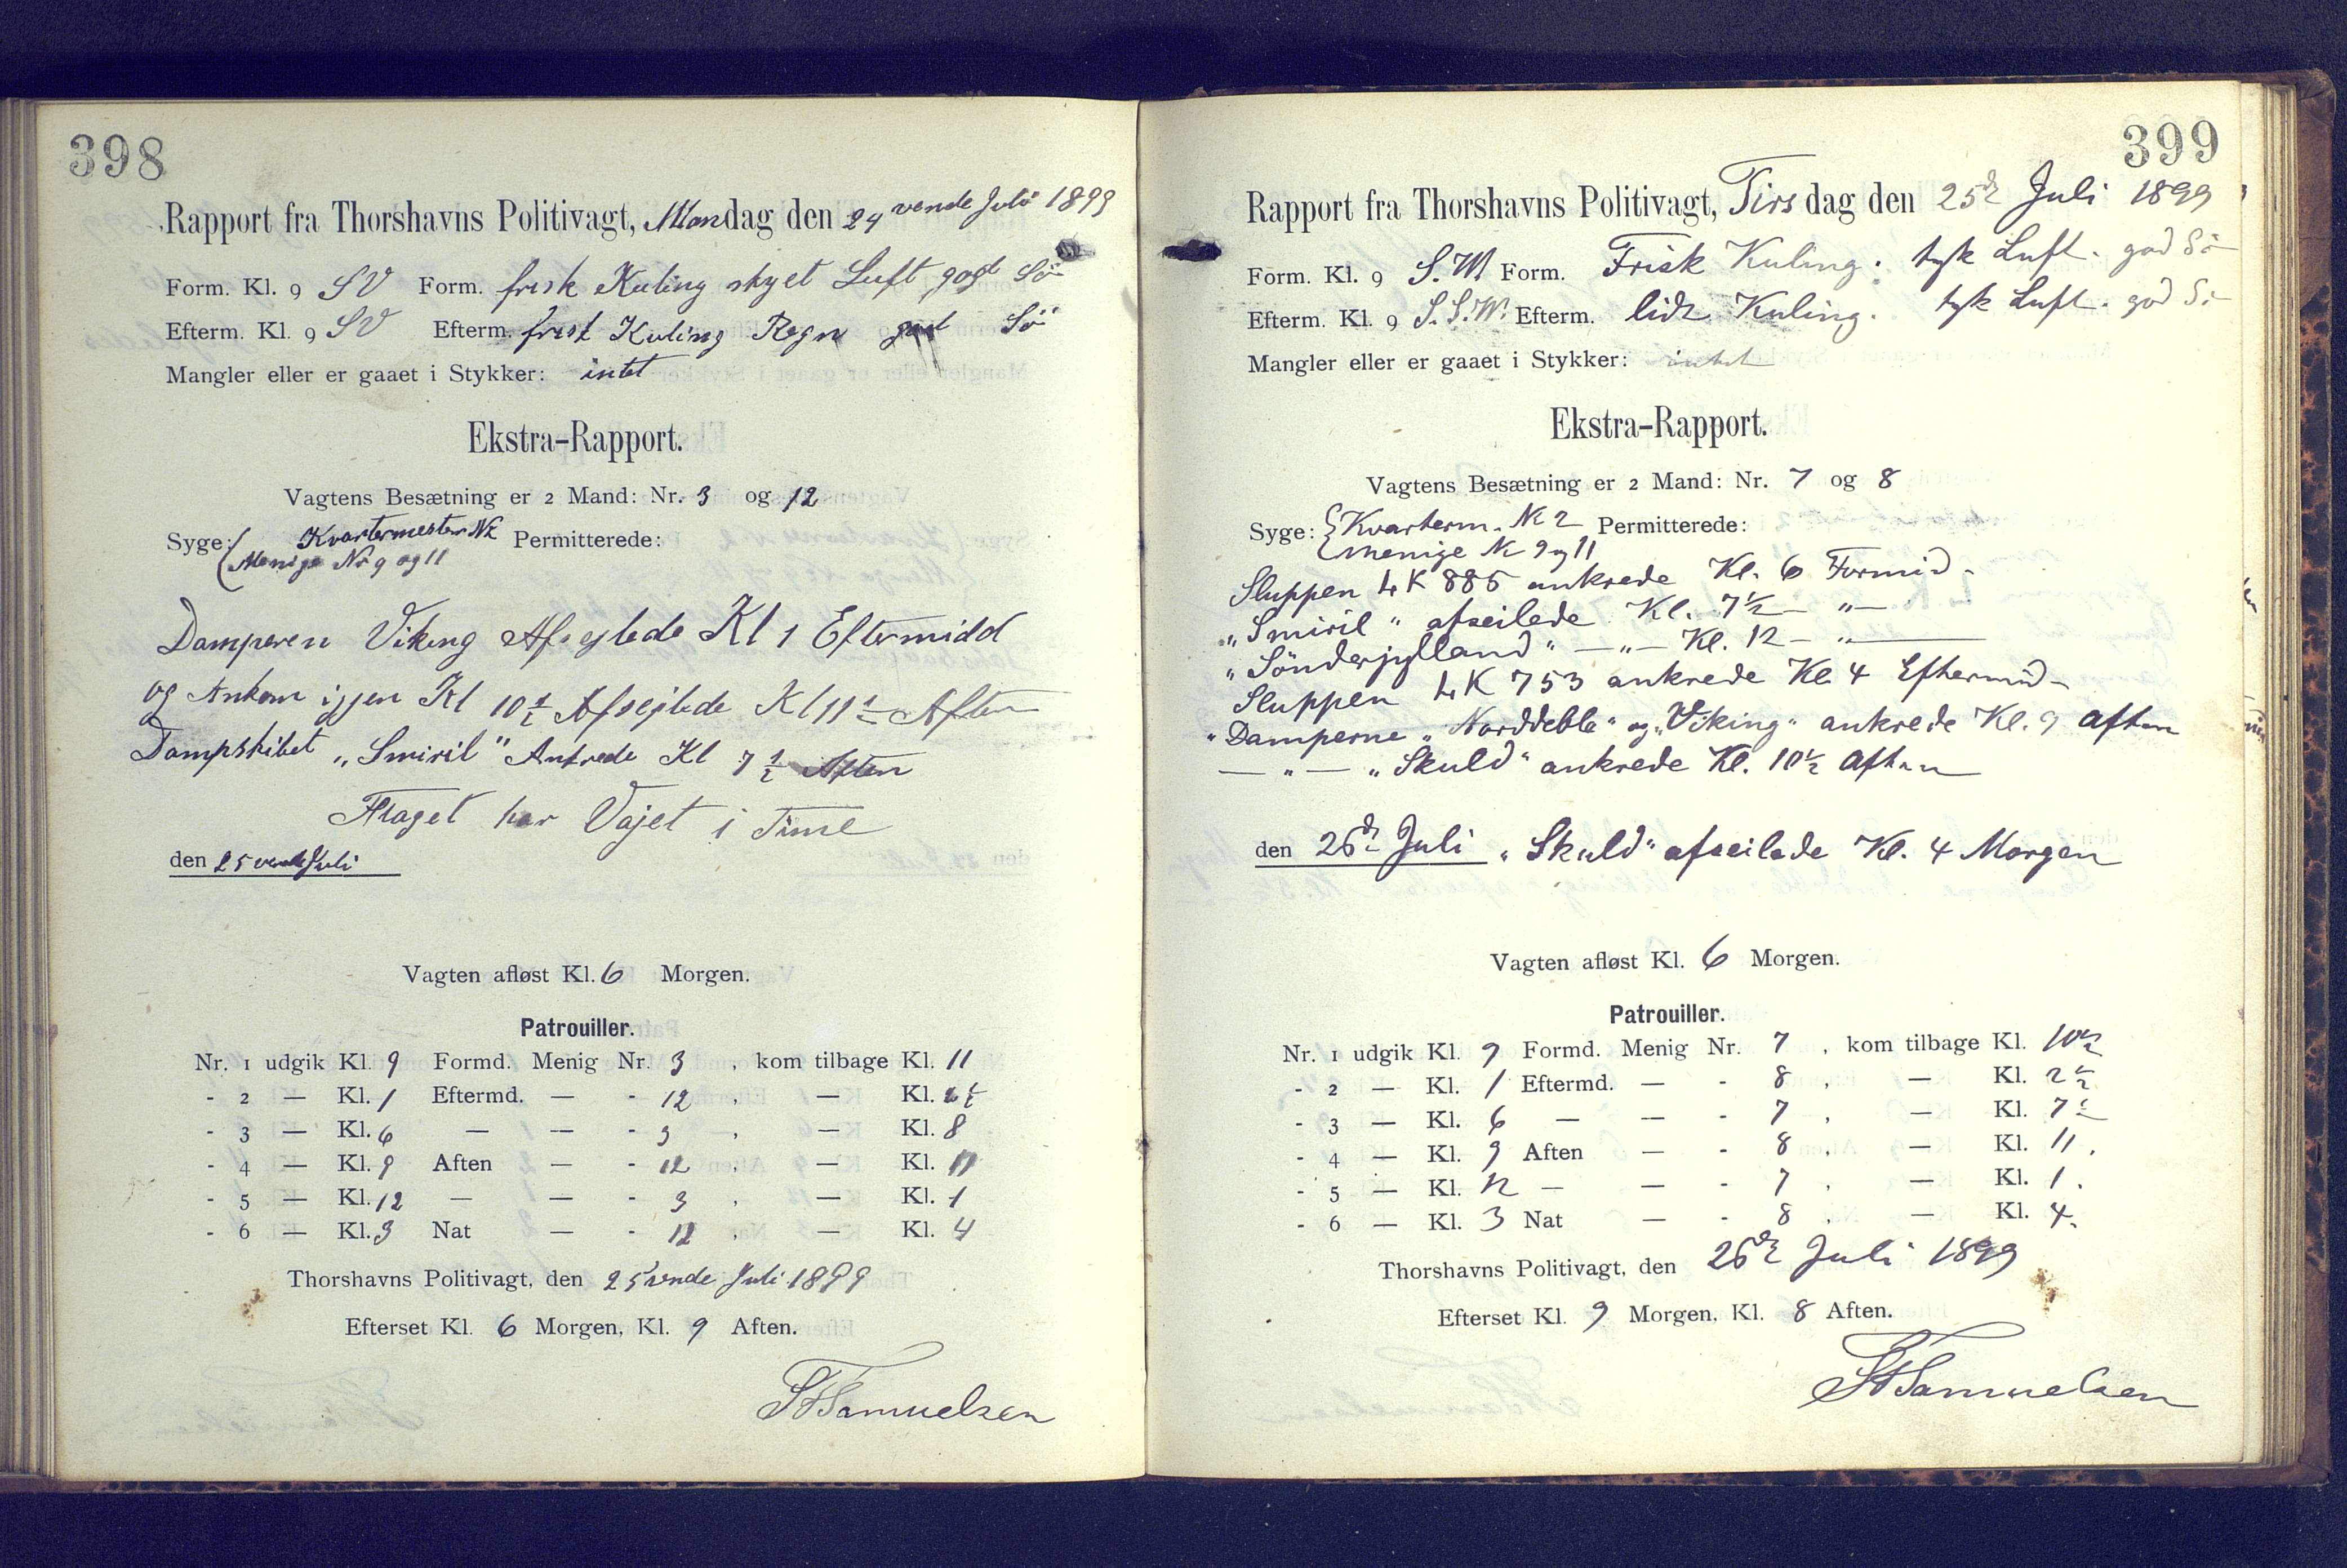 398
Rapport fra Thorshavns Politivagt, Mandag den 24 vende Juli 1899
Form. Kl. 9 SV Form. frisk Kuling skyet Luft god Sö
Efterm. Kl. 9 SV Efterm. frisk Kuling Regn god Sö
Mangler eller er gaaet i Stykker: intet
Ekstra-Rapport.
Vagtens Besætning er 2 Mand: Nr. 3 og 12
Syge: Kvartermester No 2 Permitterede:
Menige No 9 og 11
Damperen Viking Afsejlede Kl 1 Eftermidd
og Ankom igjen Kl 10 1/2 Afsejlede Kl 11 1/2 Aften
Dampskibet „Smiril" Ankrede Kl 7 1/2 Aften
Flaget har Vajet i Time
den 25 vende Juli
Vagten afløst Kl. 6 Morgen.
Patrouiller.
Nr. 1 udgik Kl. 9 Formd. Menig Nr. 3 , kom tilbage Kl. 11
- 2 — Kl. 1 Eftermd. — - 12 , — Kl. 2 1/2
- 3 — Kl. 6 — — - 3 , — Kl. 8
- 4 — Kl. 9 Aften — - 12 , — Kl. 11
- 5 — Kl. 12 — — - 3 , — Kl. 1
- 6 — Kl. 3 Nat — - 12 , — Kl. 4
Thorshavns Politivagt, den 25 vende Juli 1899
Efterset Kl. 6 Morgen, Kl. 9 Aften.
Samuelsen
399
Rapport fra Thorshavns Politivagt, Tirsdag den 25de Juli 1899
Form. Kl. 9 S.W Form. Frisk Kuling. tyk Luft. god Sö
Efterm. Kl. 9 S.S.W. Efterm. lidt Kuling. tyk Luft. god Sö
Mangler eller er gaaet i Stykker: intet
Ekstra-Rapport.
Vagtens Besætning er 2 Mand: Nr. 7 og 8
Syge: Kvarterm. No 2 Permitterede:
Menige No 9 og 11
Sluppen LK 885 ankrede Kl. 6 Formid.
„Smiril" afseilede Kl. 7 1/2 — „ —
„Sönderjylland" — „ — Kl. 12 — „ —
Sluppen LK 753 ankrede Kl. 4 Eftermid.
Damperne „Norddeble" og „Viking" ankrede Kl. 9 Aften
— „ — „Skuld" ankrede Kl. 10 1/2 Aften
den 26de Juli „Skuld" afseilede Kl. 4 Morgen
Vagten afløst Kl. 6 Morgen.
Patrouiller.
Nr. 1 udgik Kl. 9 Formd. Menig Nr. 7 , kom tilbage Kl. 10 1/2
- 2 — Kl. 1 Eftermd. — - 8 , — Kl. 2 1/2
- 3 — Kl. 6 — — - 7 , — Kl. 7 1/2
- 4 — Kl. 9 Aften — - 8 , — Kl. 11.
- 5 — Kl. 12 — — - 7 , — Kl. 1.
- 6 — Kl. 3 Nat — - 8 , — Kl. 4.
Thorshavns Politivagt, den 26de Juli 1899
Efterset Kl. 9 Morgen, Kl. 8 Aften.
Samuelsen